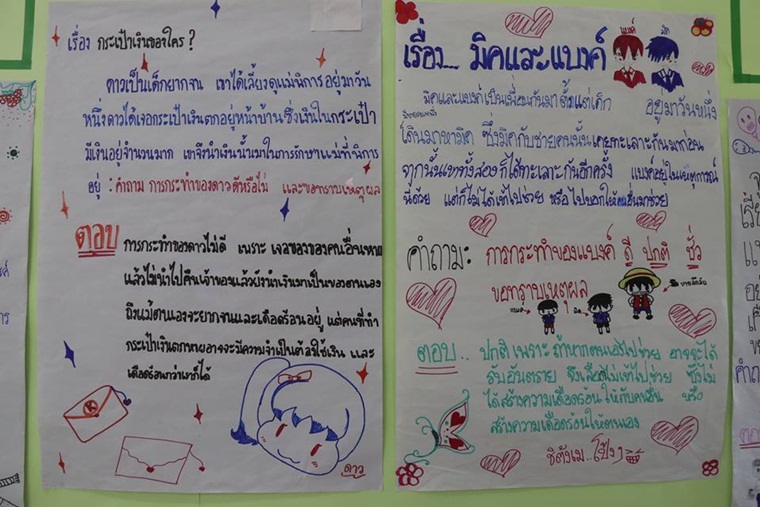 เรื่อง กระเป๋าเงินของใคร?
ดาวเป็นเด็กยากจน เขาได้เลี้ยงดูแม่พิการ อยู่มาวัน
หนึ่งดาวได้เจอกระเป๋าเงินตกอยู่หน้าบ้าน ซึ่งเงินในกระเป๋า
มีเงินอยู่จำนวนมาก เขาจึงนำเงินนั้นมาใช้การรักษาแม่ที่พิการ
อยู่ : คำถาม การกระทำของดาวดีหรือไม่ และขอทราบเหตุผล
ตอบ การกระทำของดาวไม่ดี เพราะ เจอของของคนอื่นหาย
แล้วไม่นำไปคืนเจ้าของแล้วยังนำเงินมาเป็นของตนเอง
ถึงแม้ตนเองจะยากจนและเดือดร้อนอยู่ แต่คนที่ทำ
กระเป๋าเงินตกหายอาจจะมีความจำเป็นต้องใช้เงิน และ
เดือดร้อนกว่าเขาก็ได้
ดาว
เรื่อง... มิคและแบงค์
แบงค์ มิค
มิคและแบงค์เป็นเพื่อนกันมาตั้งแต่เด็ก อยู่มาวันหนึ่ง
เดินมาหามิค ซึ่งมิคกับชายคนนั้นเคยทะเลาะกันมาก่อน
จากนั้นเขาทั้งสองก็ได้ทะเลาะกันอีกครั้ง แบงค์อยู่ในเหตุการณ์
นี้ด้วย แต่ก็ไม่ได้เข้าไปช่วย หรือไปบอกให้คนอื่นมาช่วย
คำถาม: การกระทำของแบงค์ ดี ปกติ ชั่ว
ขอทราบเหตุผล
ตอบ.. ปกติ เพราะ ถ้าหากตนเองไปช่วย อาจจะได้
รับอันตราย จึงเลือกไม่เข้าไปช่วย ซึ่งไม่
ได้สร้างความเดือดร้อนให้กับคนอื่น หรือ
สร้างความเดือดร้อนให้ตนเอง